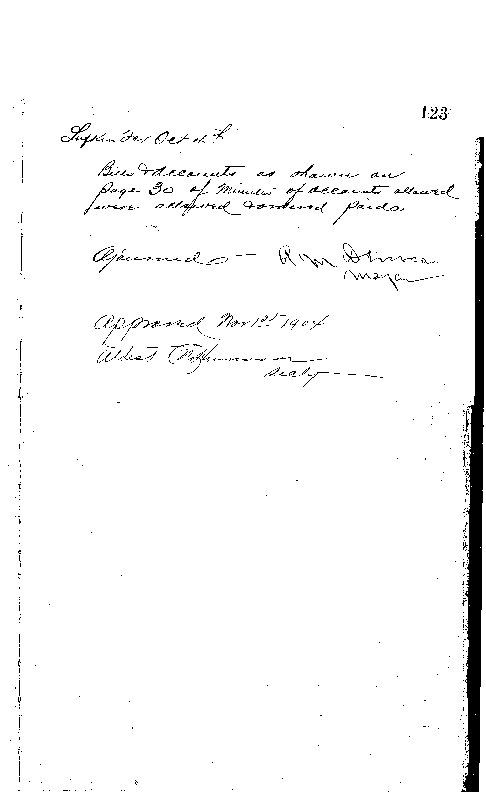 123
Lufkin Tex Oct
Bills & accounts as shown on
page 30 of Minutes of accounts allowed
were allowed & ordered paid.
Ajourned —
Mayor
Approved Nov 1st 1904
Attest
Secty